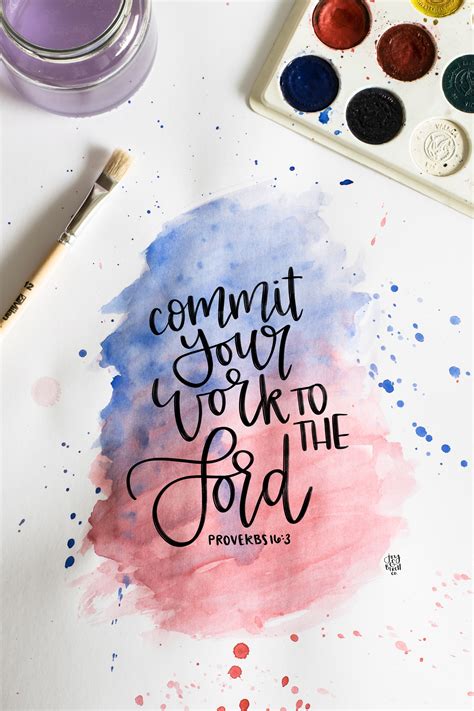 commit
your
work to
the
Lord
PROVERBS 16:3